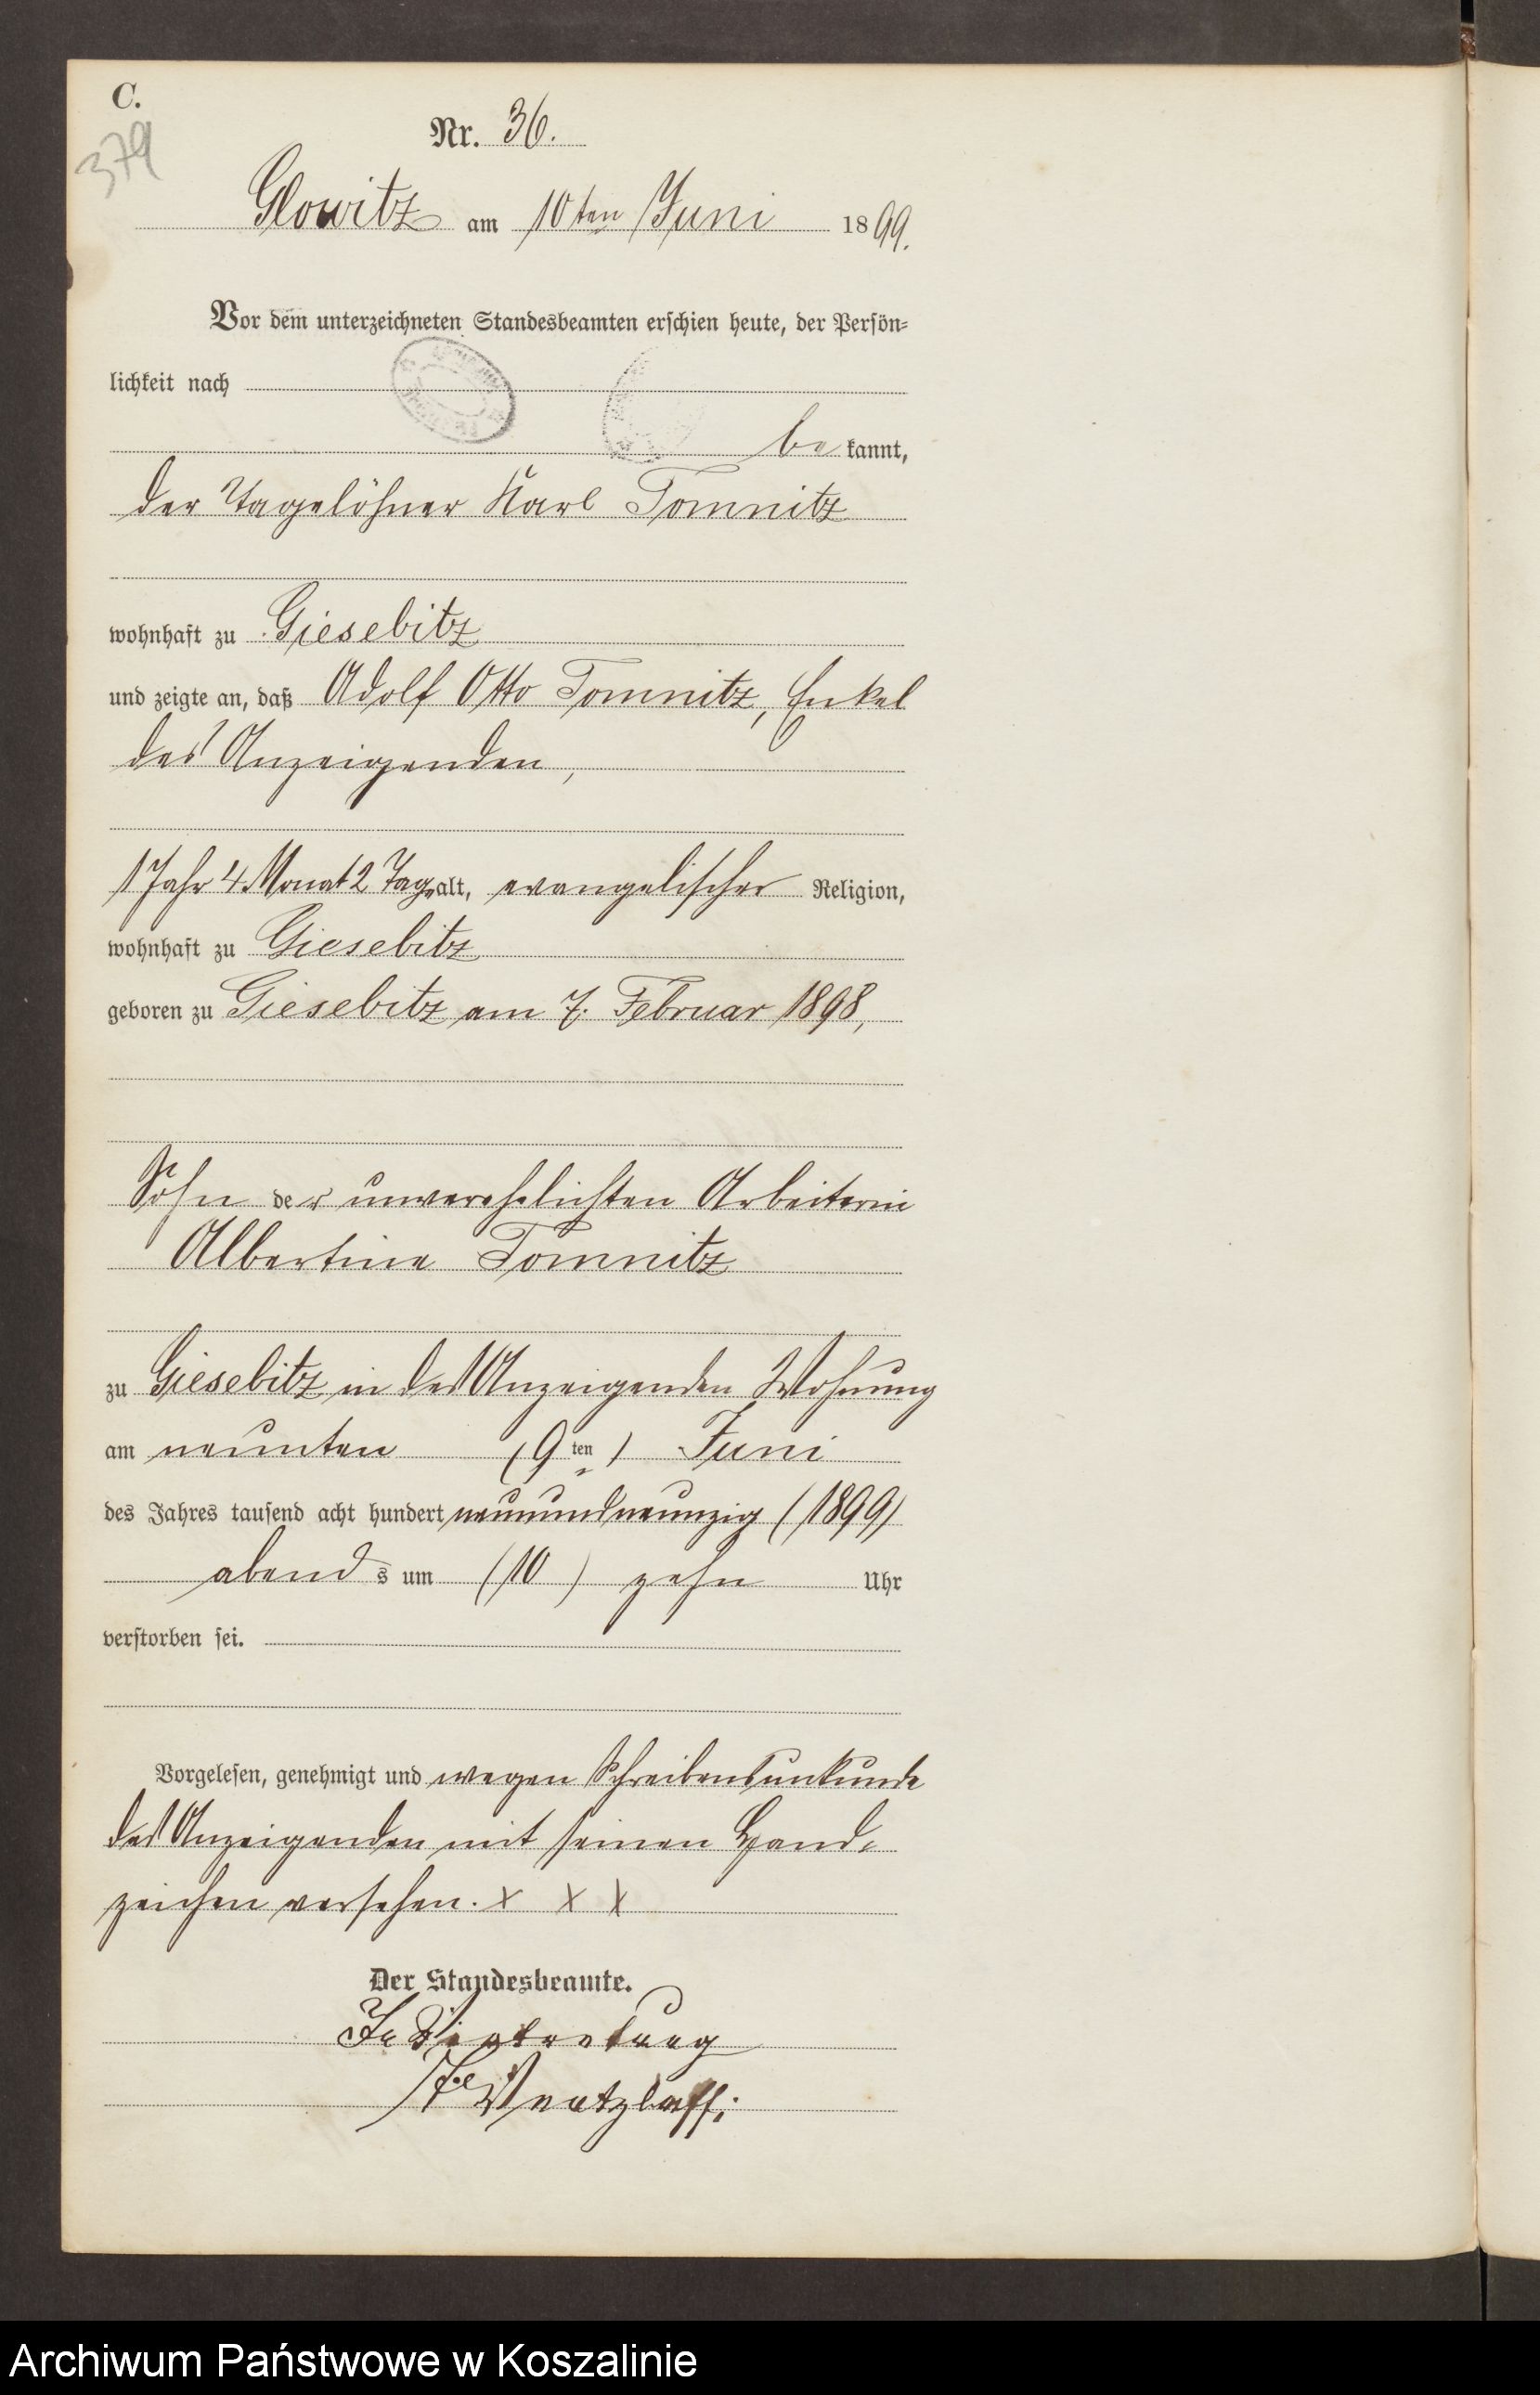 C.
379
Nr. 36.
Glowitz am 10ten Juni 1899.
Vor dem unterzeichneten Standesbeamten erschien heute, der Persön-
lichkeit nach
be kannt,
der Tagelöhner Karl Tomnitz
wohnhaft zu Giesebitz
und zeigte an, daß Adolf Otto Tomnitz, Enkel
des Anzeigenden,
1 Jahr 4 Monat 2 Tage alt, evangelischer Religion,
wohnhaft zu Giesebitz
geboren zu Giesebitz am 7. Februar 1898,
Sohn der unverehelichten Arbeiterin
Albertine Tomnitz
zu Giesebitz in des Anzeigenden Wohnung
am neunten (9ten) Juni
des Jahres tausend acht hundert neunundneunzig (1899)
abends um (10) zehn Uhr
verstorben sei.
Vorgelesen, genehmigt und wegen Schreibensunkunde
des Anzeigenden mit seinen Hand-
zeichen versehen. x x x
Der Standesbeamte.
In Vertretung
Wentzlaff.
Archiwum Państwowe w Koszalinie